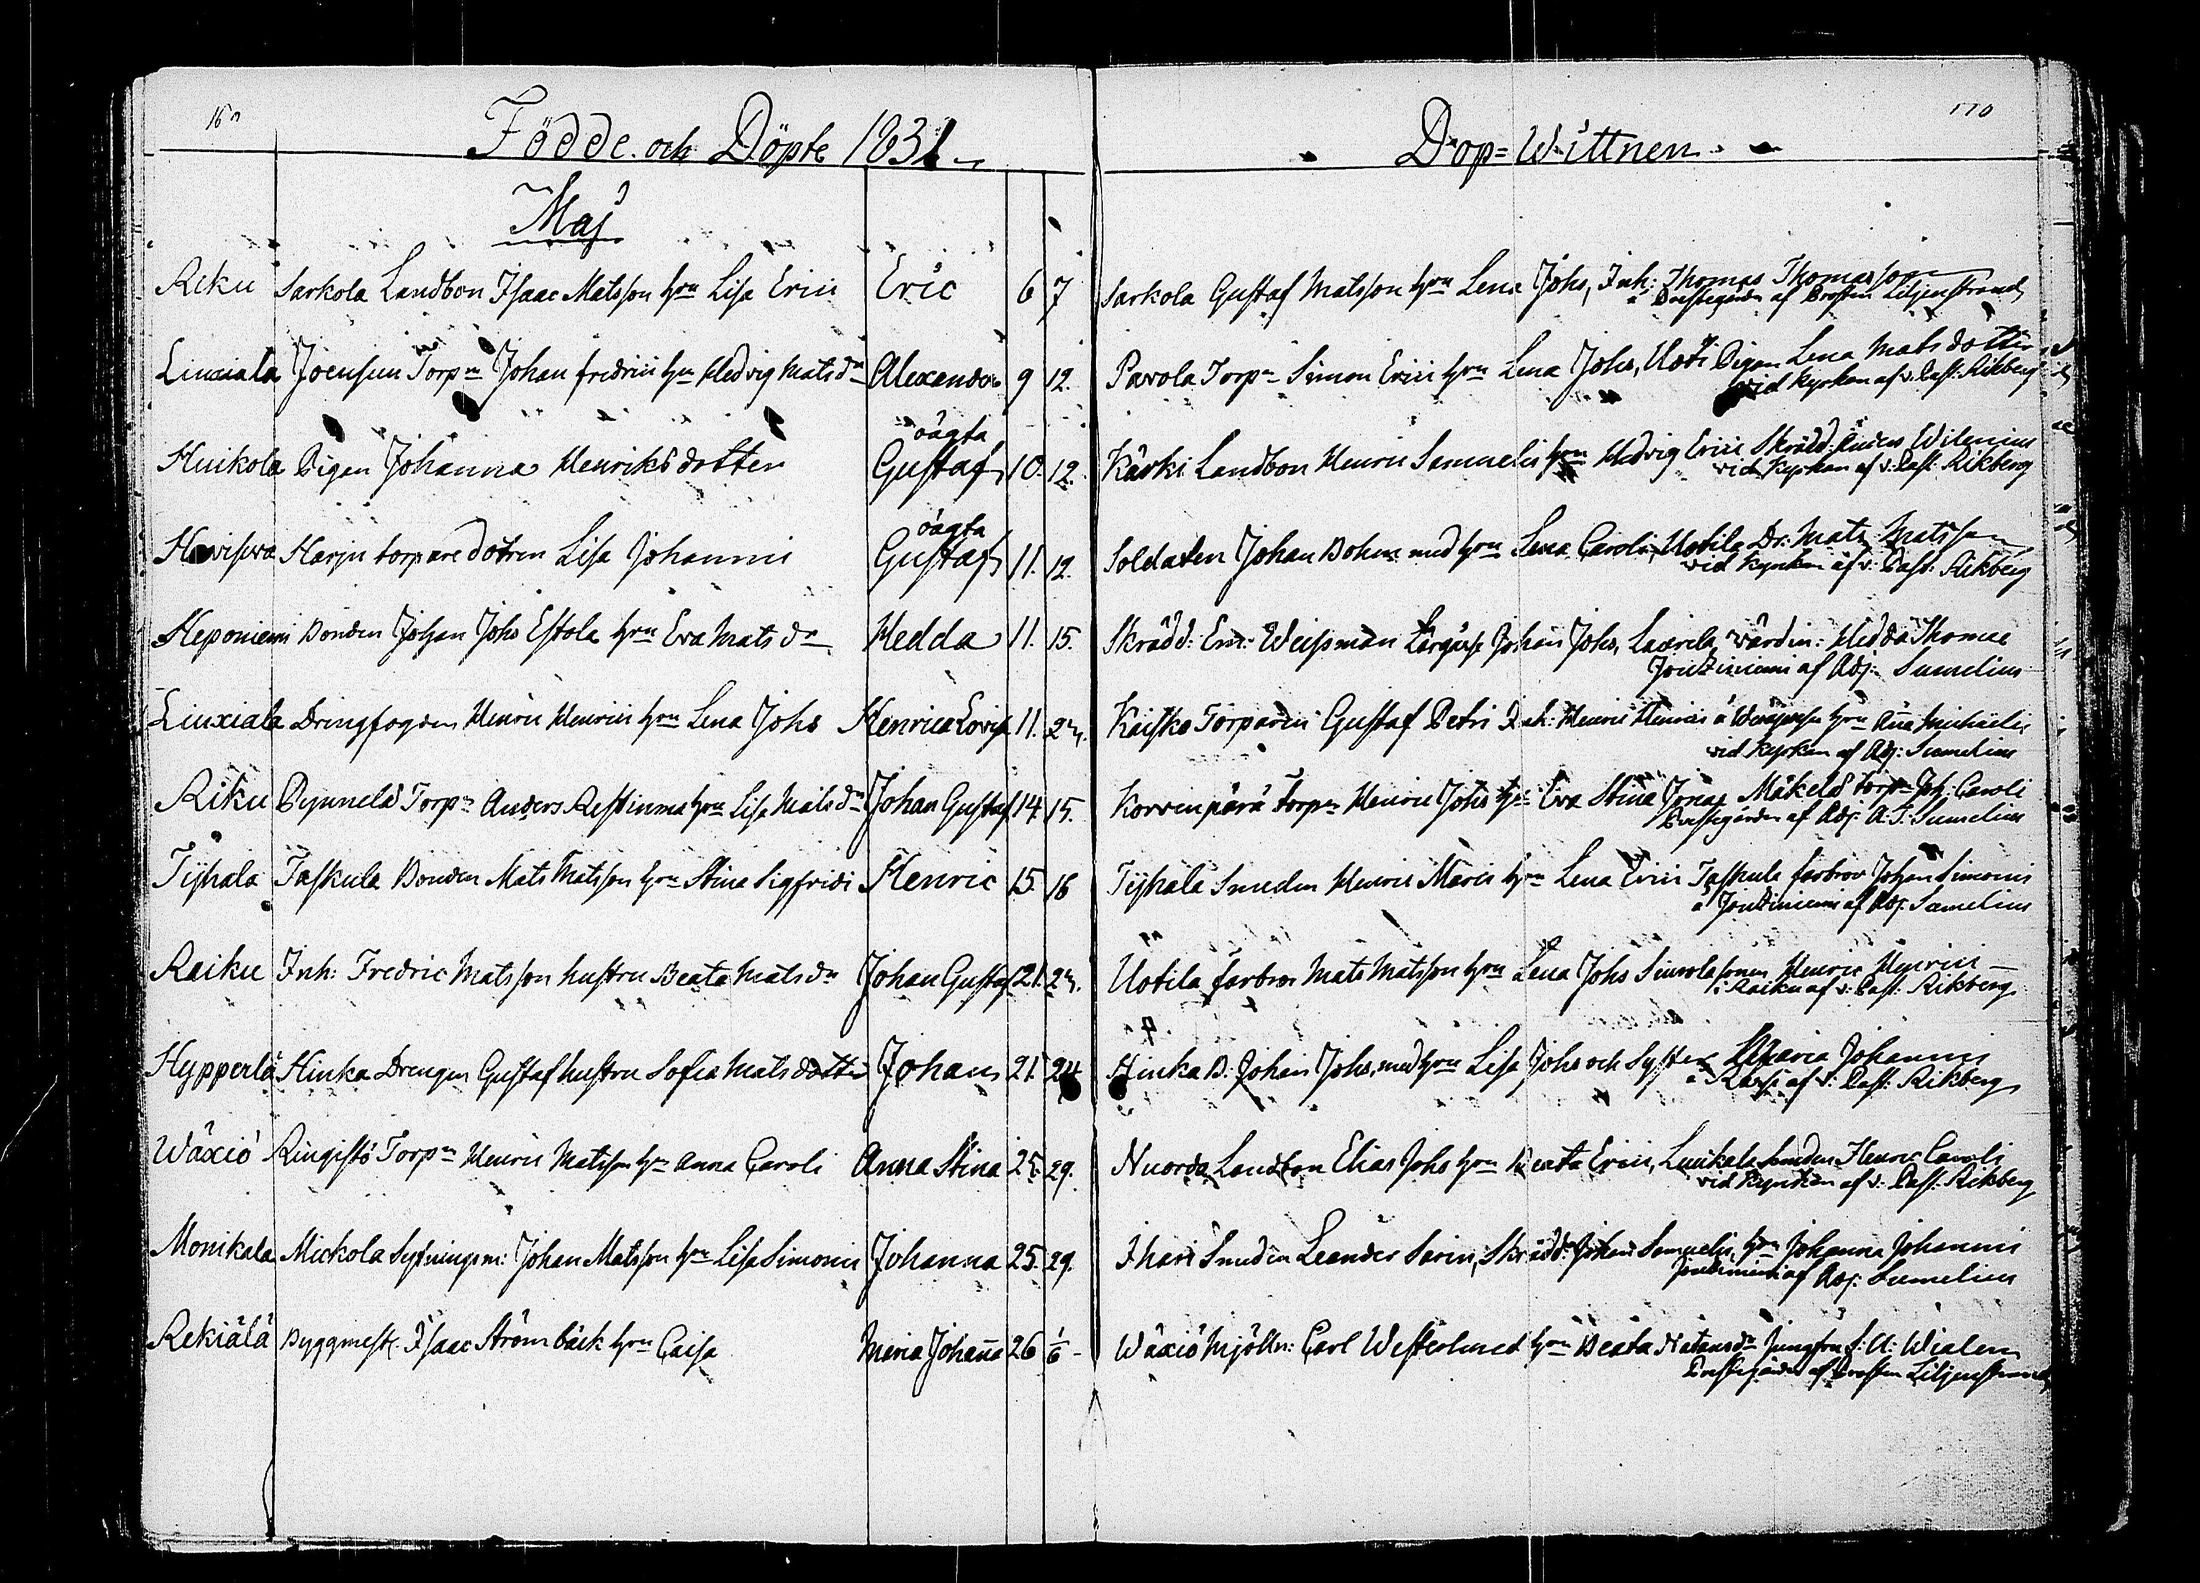 Födde och Döpte 1831
170
Dop-Wittnen
Maj
Reku Sarkola Landbon Isaac Matsson hru Lisa Erici Eric 6 7 Sarkola Gustaf Matsson hru Lena Johs, Inh: Thomas Thomasson
Prestegården af Prosten Liljenstrand
Liuxiala Joensuu Torpn Johan fredrici hru Hedvig Mats dr Alexander 9 12. Pavola Torpn Simon Erici hru Lena Johs, Uoti Pigan Lena Mats dotter
vid Kyrkan af v. Past. Rikberg
oägta
Huikola Pigan Johanna Henriksdotter Gustaf 10. 12. Kärki Landbon Henric Samuelis hru Hedvig Erici Skrädd: Anders Wilenius
vid Kyrkan af v: Past: Rikberg
oägta
Harju torpare dotren Lisa Johannis Gustaf 11. 12. Soldaten Johan Bohm med hru Lena Caroli, Uotila Dr. Mats Matsson
vid Kyrkan af v: Past: Rikberg
Heponiemi Bonden Johan Johs Estola hru Eva Mats dr Hedda 11. 15. Skrädd: Em: Weissman Johan Johs, Laurila värdin: Hedda Thomae
af Adj: Sumelius
Liuxiala Drengfogden Henric Henrici hru Lena Johs Henrica Lovisa 11. Kaisko Torparen Gustaf Petri Inh: Henric Henrici hru Aña Michaelis
vid Kyrkan af Adj: Sumelius
Riku Torpn Anders hru Lisa Mats dr Johan Gustaf 14. 15. Korvenpärä Torpn Henric Johs hru Eva Stina Jonae Mäkelä torpn Joh: Caroli
Prestegården af Adj: A: J: Sumelius
Tijhala Taskula Bonden Mats Matsson hru Stina Sigfridi Henric 15. 16 Tijhala Smeden Henric Marci hru Lena Erici Taskula farbror Johan Simonis
af Adj. Sumelius
Raiku Inh: Fredric Matsson hustru Beata Mats dr Johan Gustaf 21. Uotila farbror Mats Matsson hru Lena Johs sonen Henric Henrici
i Raiku af v: Past: Rikberg
Hypperlä Hinka Drengen Gustaf hustru Sofia Mats dotter Johan 21. 24 Hinka B: Johan Johs, med hru Lisa Johs och Syster Maria Johannis
af v: Past: Rikberg
Wäxiö Ringistö Torpn Henric Matsson hru Anna Caroli Anna Stina 25. 29. Nuorda Landbon Elias Johs hru Beata Erici, Smeden Henric Caroli
vid Kyrkan af v: Past: Rikberg
Monikala Mickola Sytningsm: Johan Matsson hru Lisa Simonis Johanna 25. 29. Ihari Smeden Leander Sarin, Skrädd: Johan Samuelis, hru Johanna Johannis
af Adj: Sumelius
Rekiälä Byggmest. Isaac Strömbäck hru Caisa Maria Johaña 26 1/6 Wäxiö Mjölln: Carl Westerlund hru Beata Jungfru
Prestegården af Prosten Liljenstrand